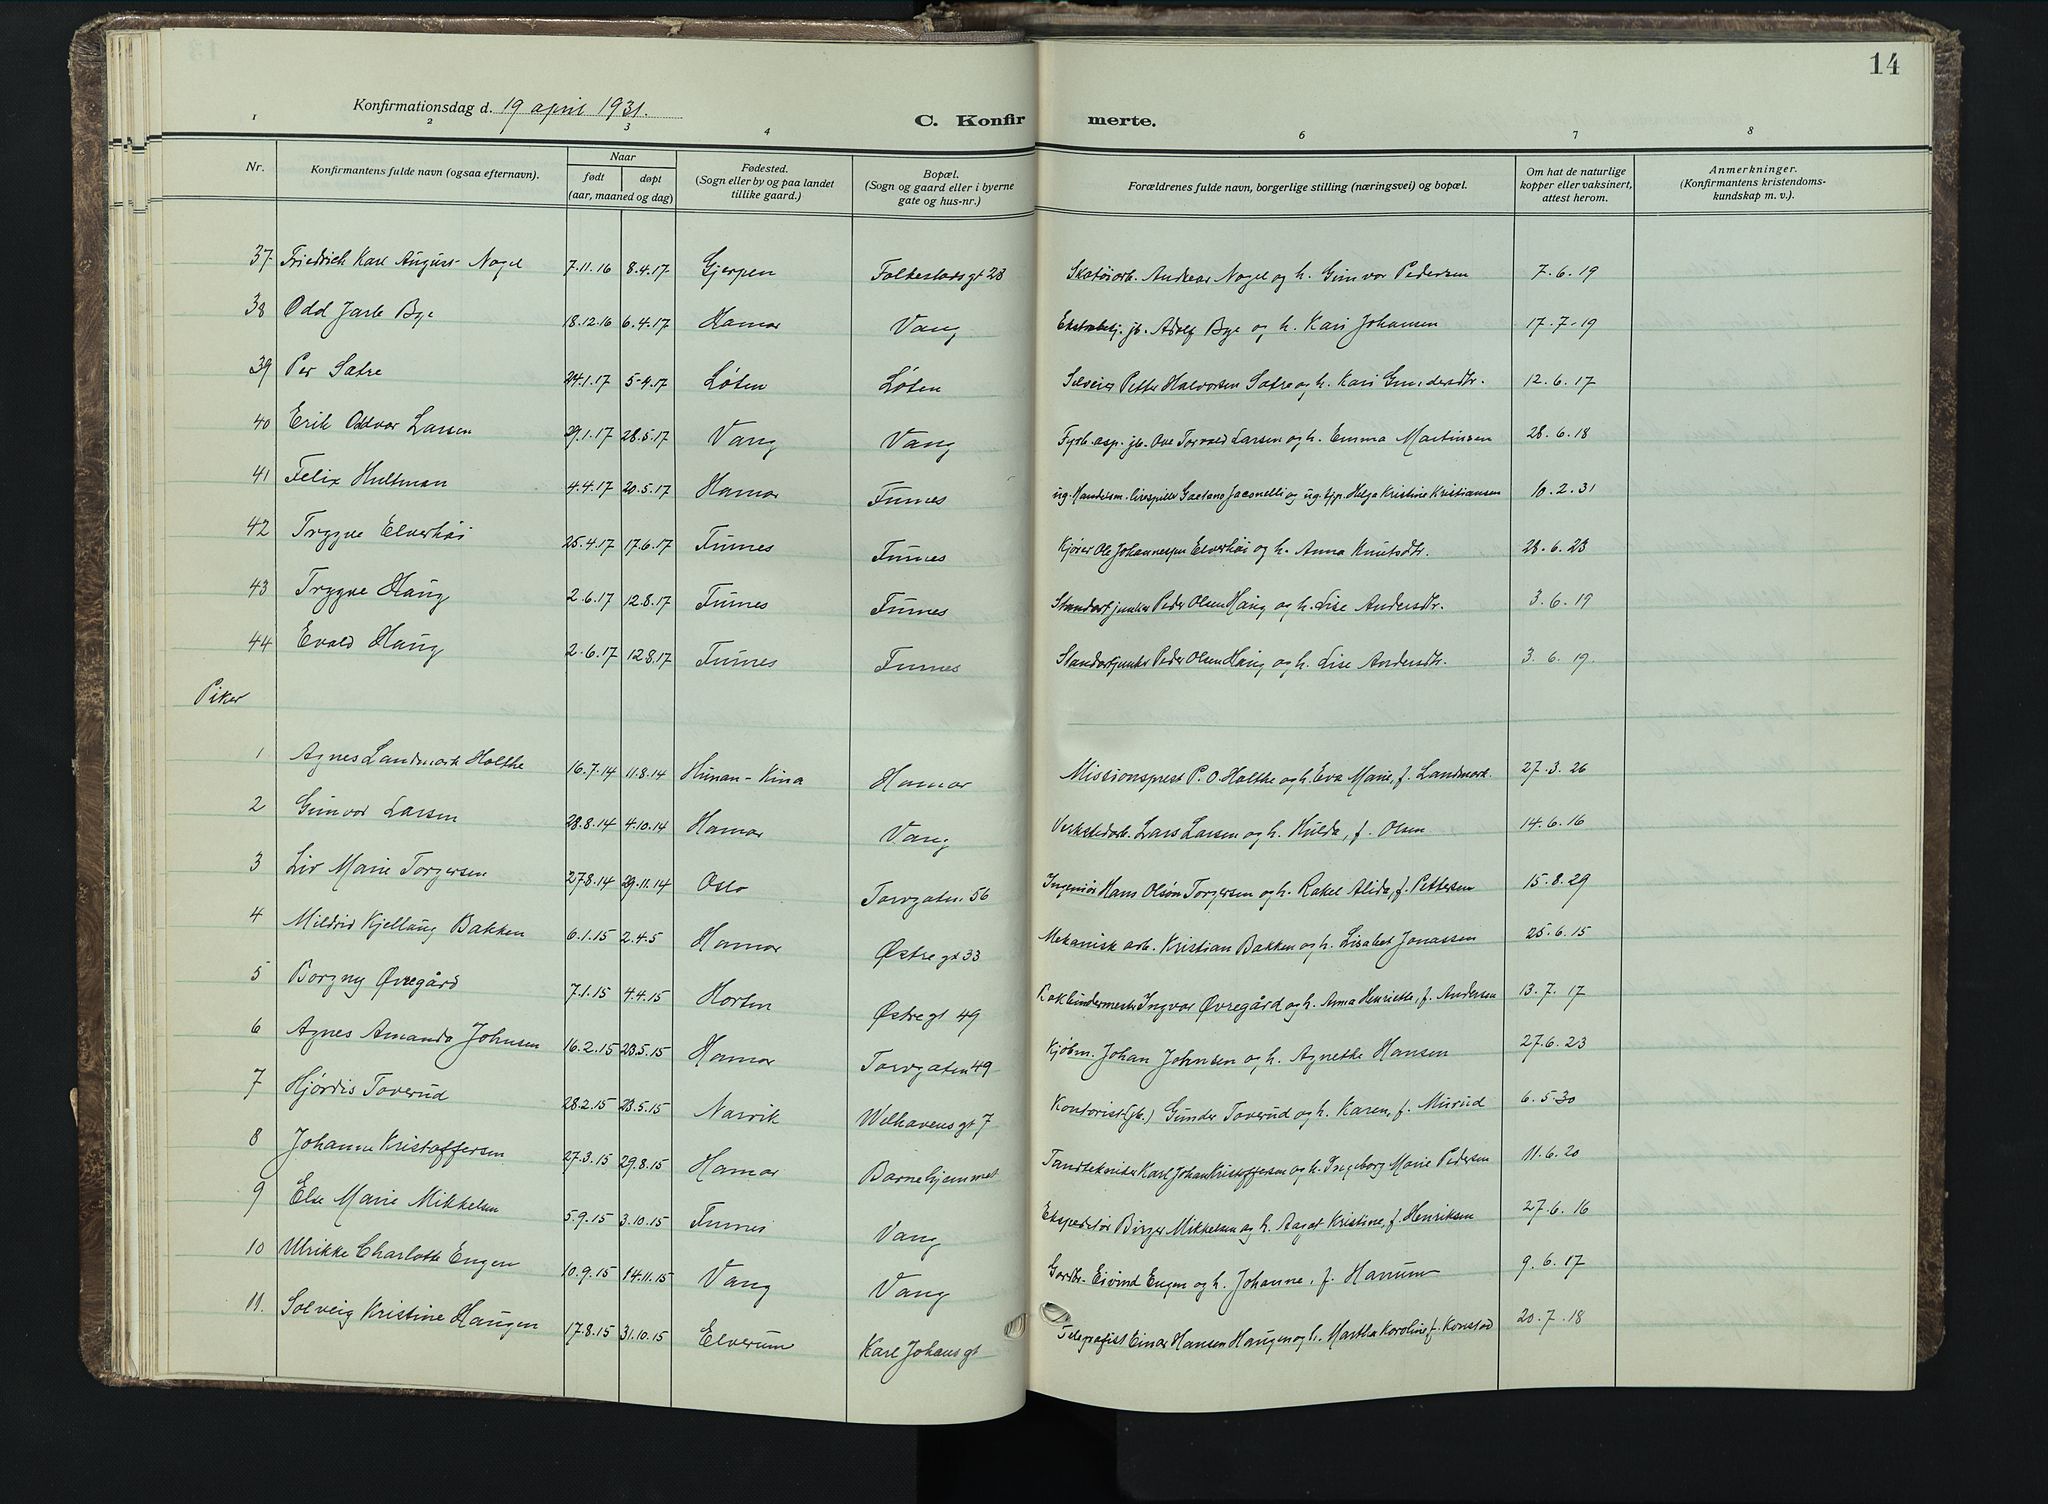 14
Konfirmationsdag d. 19 april 1931.
C. Konfirmerte.
1 2 3 4 6 7 8
Nr. | Konfirmantens fulde navn (ogsaa efternavn). | Naar født døpt (aar, maaned og dag) | Fødested. (Sogn eller by og paa landet tillike gaard.) | Bopæl. (Sogn og gaard eller i byerne gate og hus-nr.) | Forældrenes fulde navn, borgerlige stilling (næringsvei) og bopæl. | Om hat de naturlige kopper eller vaksinert, attest herom. | Anmerkninger. (Konfirmantens kristendomskundskap m. v.).
37 Friedrich Karl August Nagel 7.11.16 8.4.17 Gjerpen Folkestadsgt 28 Skotøiarb. Andreas Nagel og h. Gunvor Pedersen 7.6.19
38 Odd Jarle Bye 18.12.16 6.4.17 Hamar Vang jb. Adolf Bye og h. Kari Johansen 17.7.19
39 Per Sætre 24.1.17 5-4.17 Løten Løten Selveier Petter Halvorsen Sætre og h. Kari Gundersdtr. 12.6.17
40 Erik Oddvar Larsen 29.1.17 28.5.17 Vang Vang Fyrb.asp. jb. Ove Torvald Larsen og h. Emma Martinsen 28.6.18
41 Felix Hultman 4.4.17 20.5.17 Hamar Furnes ug. Handelsm. lirespiller Gaetano Jaconelli og ug. tjp. Helga Kristine Kristiansen 10.2.31
42 Trygve Elverhøi 25.4.17 17.6.17 Furnes Furnes Kjører Ole Johannessen Elverhøi og h. Anna Knutsdtr. 28.6.23
43 Trygve Haug 2.6.17 12.8.17 Furnes Furnes Standartjunker Peder Olsen Haug og h. Lise Andersdtr. 3.6.19
44 Evald Haug 2.6.17 12.8.17 Furnes Furnes Standartjunker Peder Olsen Haug og h. Lise Andersdtr. 3.6.19.
Piker
1 Agnes Landmark Holthe 16.7.14 11.8.14 Hunan-Kina Hamar Missionsprest P. O. Holthe og h. Eva Marie, f. Landmark. 27.3.26
2 Gunvor Larsen 28.8.14 4.10.14 Hamar Vang Verkstedarb. Lars Larsen og h. Hulda, f. Olsen 14.6.16
3 Liv Marie Torgersen 27.8.14 29.11.14 Oslo Torvgaten 56 Ingeniør Hans Olsøn Torgersen og h. Rakel Alida, f. Pettersen 15.8.29
4 Mildrid Kjellaug Bakken 6.1.15 2.4.5 Hamar Østregt 33 Mekanisk arb. Kristian Bakken og h. Lisabet Jonassen 25.6.15
5 Borgny Øvregård 7.1.15 4.4.15 Horten Østregt 49 Bokbindermester Ingvar Øvregård og h. Anna Henriette, f. Andersen 13.7.17
6 Agnes Amanda Johnsen 16.2.15 23.5.15 Hamar Torvgaten 49 Kjøbm. Johan Johnsen og h. Agnethe Hansen 27.6.23
7 Hjørdis Toverud 28.2.15 23.5.15 Narvik Welhavensgt 7 Kontorist (jb.) Gunder Toverud og h. Karen, f. Murud 6.5.30
8 Johanne Kristoffersen 27.3.15 29.8.15 Hamar Barnehjemmet Tandtekniker Karl Johan Kristoffersen og h. Ingeborg Marie Pedersen 11.6.20
9 Else Marie Mikkelsen 5.9.15 3.10.15 Furnes Vang Ekspeditør Birger Mikkelsen og h. Aagot Kristine, f. Henriksen 27.6.16
10 Ulrikke Charlotte Engen 10.9.15 14.11.15 Vang Vang Gardbr. Eivind Engen og h. Johanne, f. Hanum 9.6.17
11. Solveig Kristine Haugen 17.8.15 31.10.15 Elverum Karl Johansgt Telegrafist Einar Hansen Haugen og h. Martha Karoline f. Konstad 20.7.18